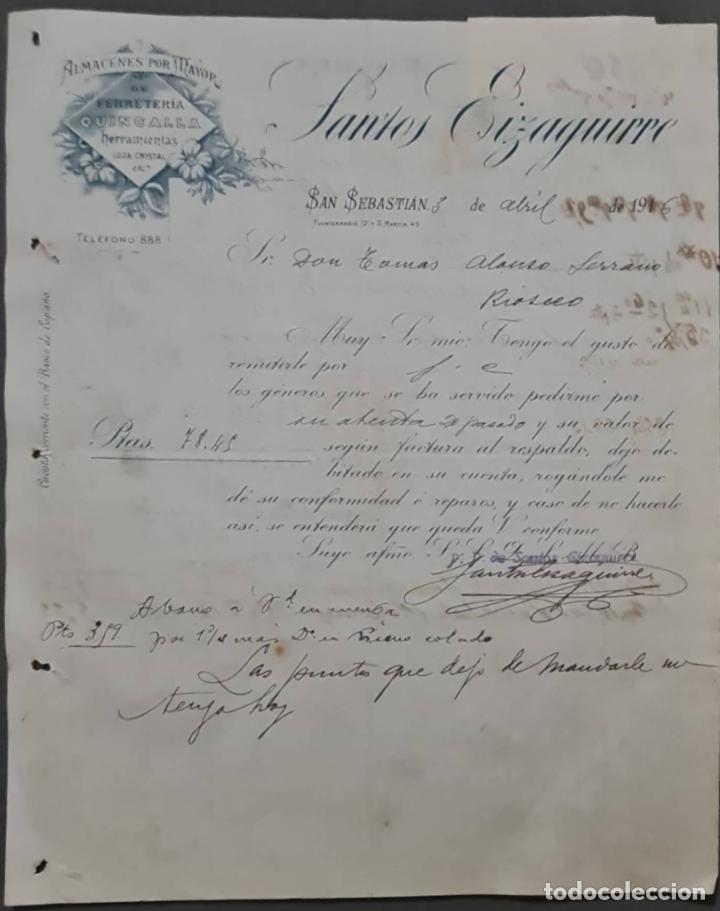 ALMACENES POR MAYOR
DE
FERRETERÍA
QUINCALLA
Herramientas
LOZA, CRISTAL
etc.ª
TELÉFONO 888
Santos Eizaguirre
SAN SEBASTIÁN, 8 de abril de 1916
FUENTERRABÍA, 12 Y S. MARTÍN, 45
Sr. Don Tomas Alonso Serrano
Rioseco
Cuenta corriente con el Banco de España
Muy Sr. mío: Tengo el gusto de
remitirle por f. c.
los géneros que se ha servido pedirme por
su atenta 20 pasado y su valor de
Ptas. 78.45
según factura al respaldo, dejo de-
bitado en su cuenta, rogándole me
dé su conformidad ó reparos, y caso de no hacerlo
así, se entenderá que queda V. conforme
Suyo afmo. S. S.
p. p. de Santos Eizaguirre
Abono á Vd. en cuenta
Pts 3,59. por 1% más Dto en
Las puntas que dejo de mandarle no
tengo hoy
todocoleccion.net